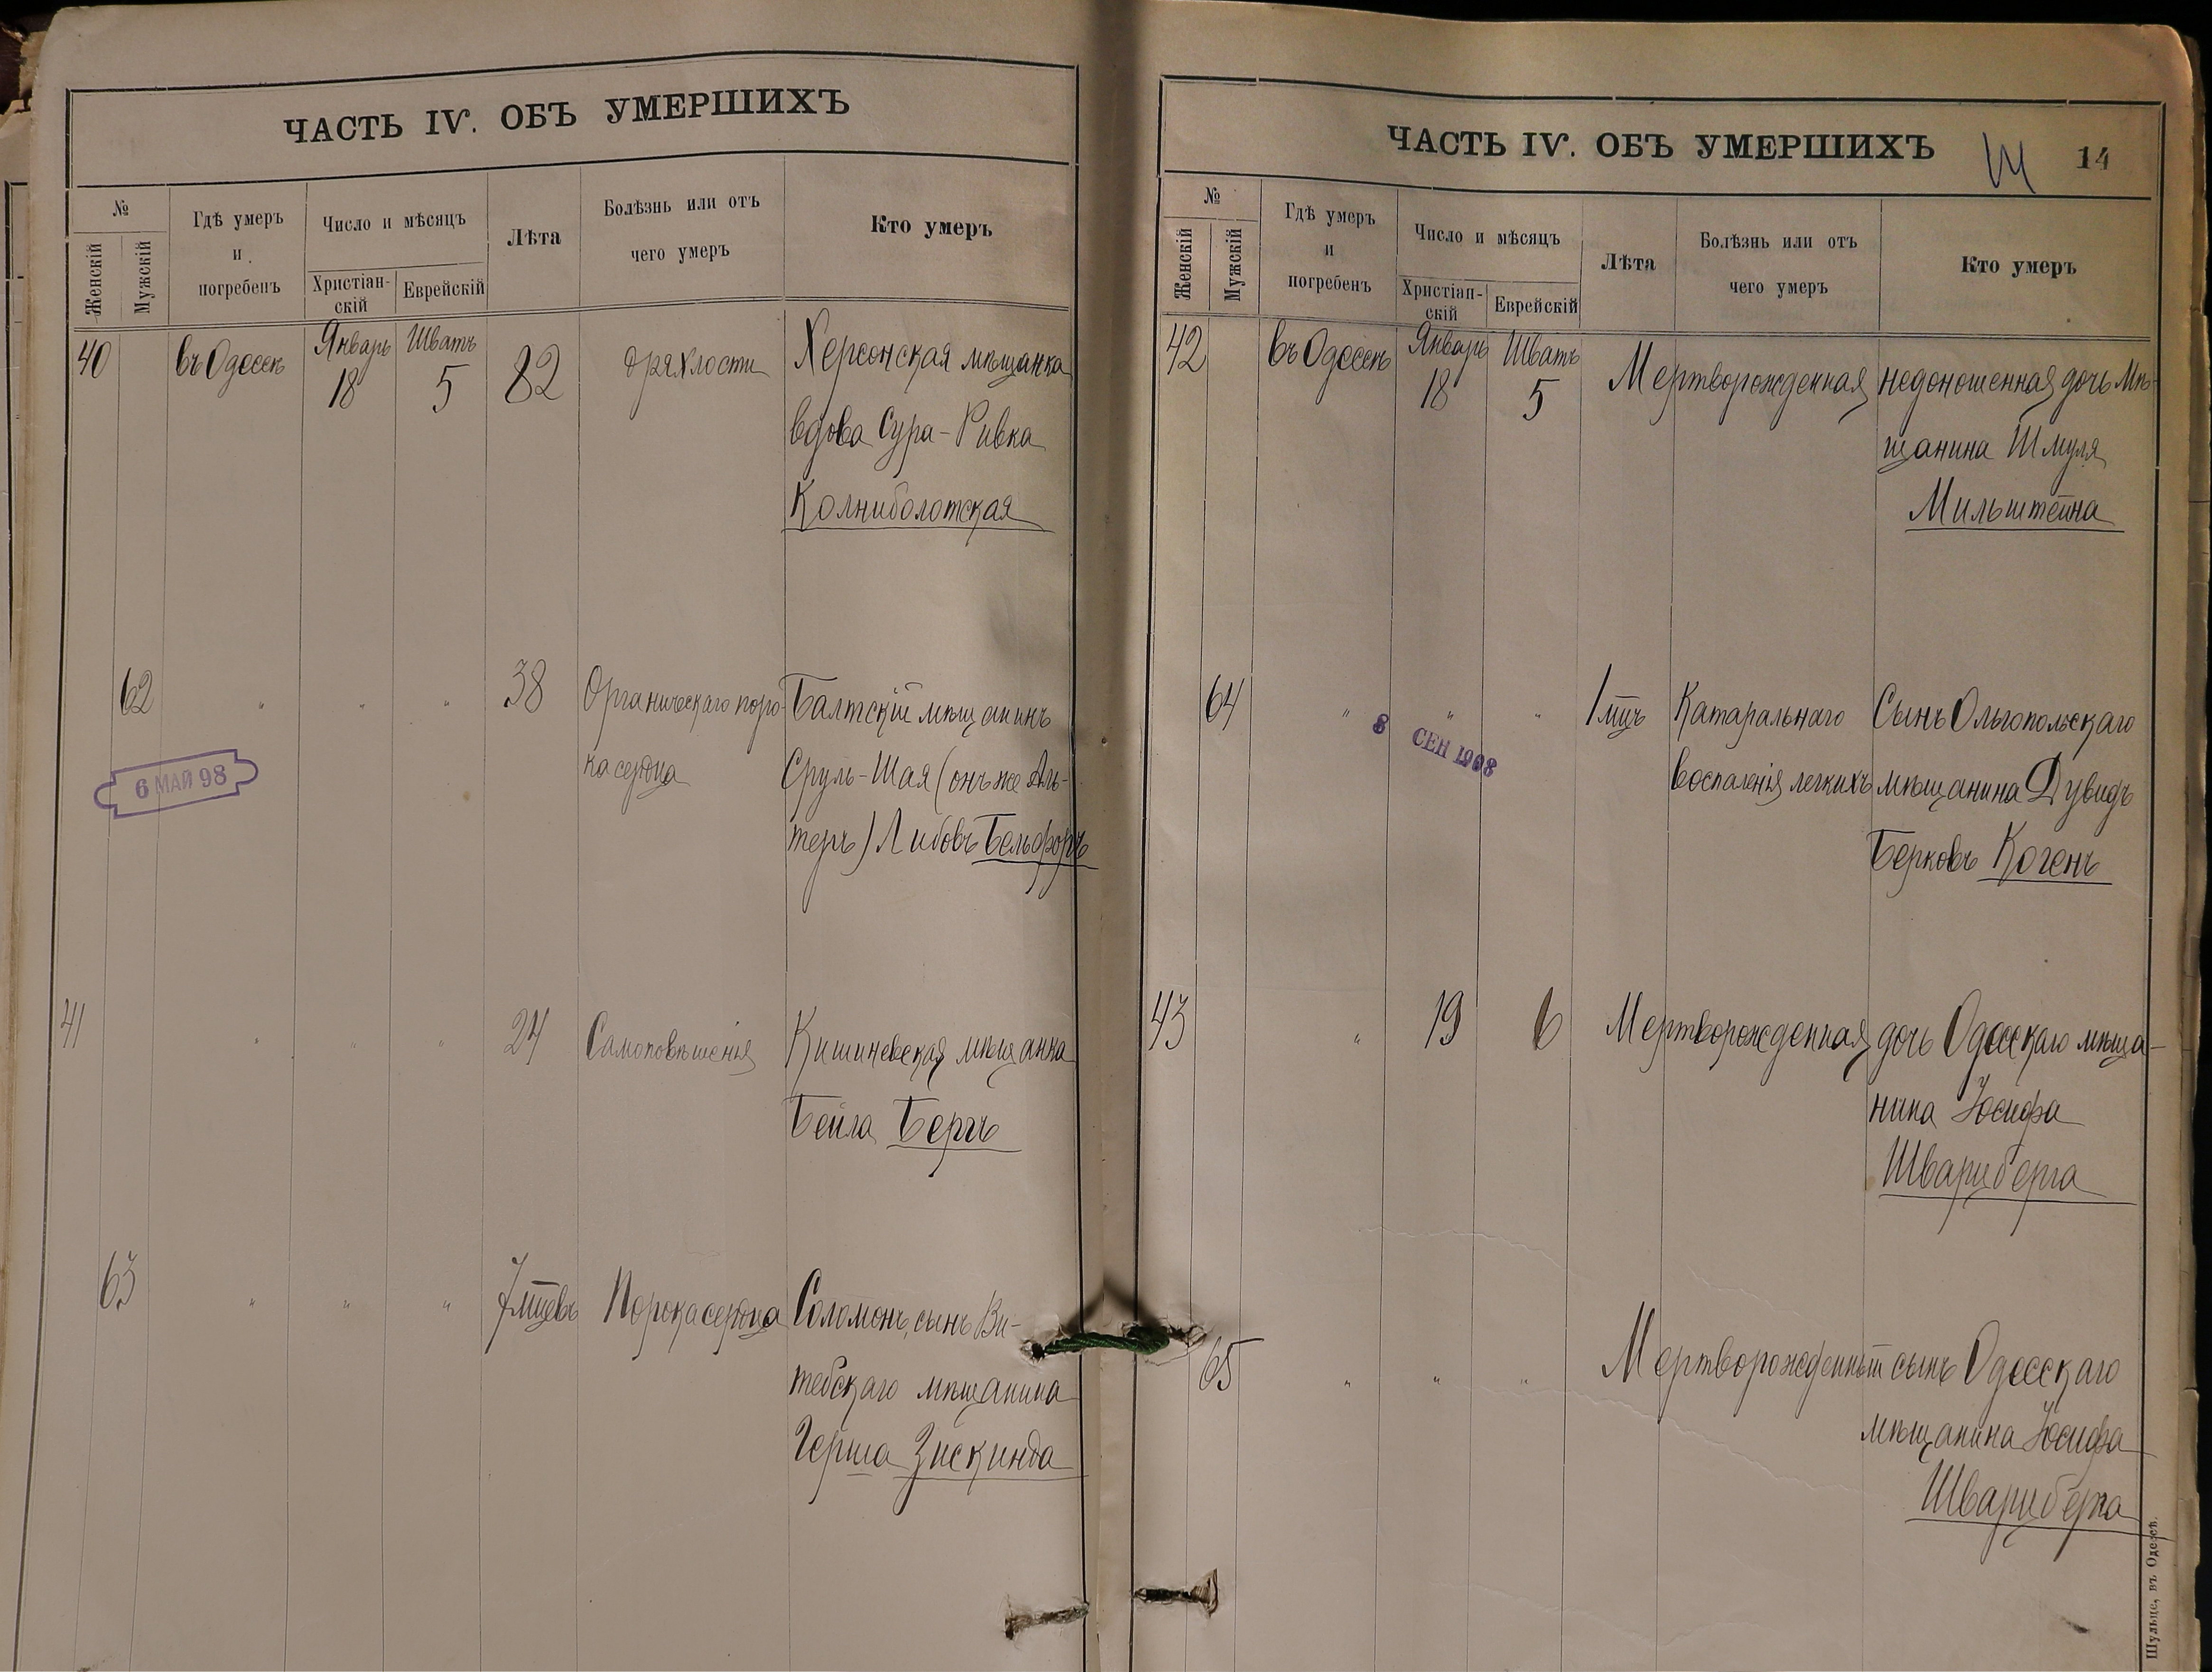 ЧАСТЬ IV. ОБЪ УМЕРШИХЪ
№
Женскій
Мужскій
Гдѣ умеръ
и
погребенъ
Число и мѣсяцъ
Христіан-
скій
Еврейскій
Лѣта
Болѣзнь или отъ
чего умеръ
Кто умеръ
40
въ Одессѣ
Январь
18
Шватъ
5
82
дряхлости
Херсонская мѣщанка
вдова Сура-Ривка
Колниболотская
62
" " "
38
Органическаго поро-
ка сердца
Балтскій мѣщанинъ
Сруль-Шая (онъ же Аль-
теръ) Либовъ Бельфоръ
6 МАЙ 98
41
" " "
24
Самоповѣшенія
Кишиневская мѣщанка
Бейла Бергъ
63
" " "
7 мцевъ
Порока сердца
Соломонъ, сынъ Ви-
тебскаго мѣщанина
Герша Зискинда
ЧАСТЬ IV. ОБЪ УМЕРШИХЪ
14
№
Женскій
Мужскій
Гдѣ умеръ
и
погребенъ
Число и мѣсяцъ
Христіан-
скій
Еврейскій
Лѣта
Болѣзнь или отъ
чего умеръ
Кто умеръ
42
въ Одессѣ
Январь
18
Шватъ
5
Мертворожденная недоношенная дочь Мѣ-
щанина Шмуля
Мильштейна
64
" " "
8 СЕН 1908
1 мцъ
Катаральнаго
воспаленія легкихъ
Сынъ Ольгопольскаго
мѣщанина Дувидъ
Берковъ Когенъ
43
"
19
6
Мертворожденная дочь Одесскаго мѣща-
нина Іосифа
Шварцберга
65
" " "
Мертворожденный сынъ Одесскаго
мѣщанина Іосифа
Шварцберга
Шульце, въ Одессѣ.